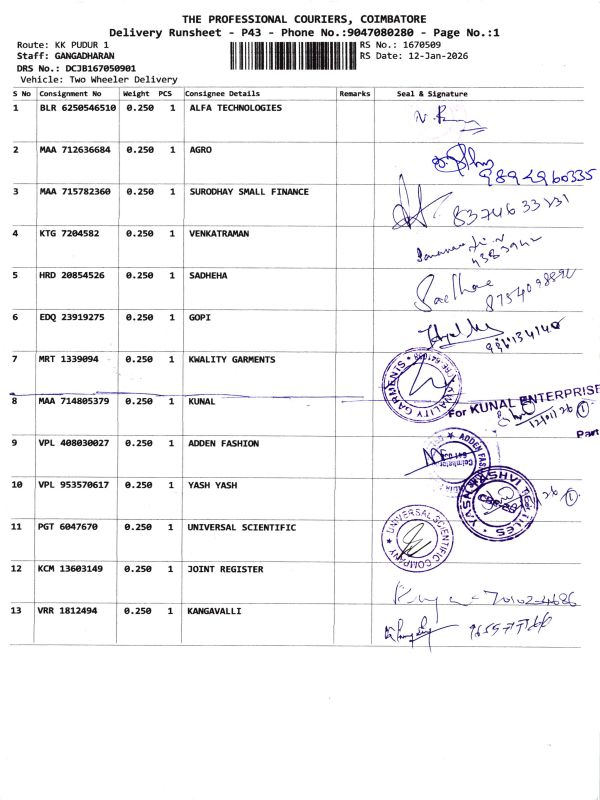 THE PROFESSIONAL COURIERS, COIMBATORE
Delivery Runsheet - P43 - Phone No.:9047080280 - Page No.:1
Route: KK PUDUR 1 RS No.: 1670509
Staff: GANGADHARAN RS Date: 12-Jan-2026
DRS No.: DCJB167050901
Vehicle: Two Wheeler Delivery
S No Consignment No Weight PCS Consignee Details Remarks Seal & Signature
1 BLR 6250546510 0.250 1 ALFA TECHNOLOGIES
2 MAA 712636684 0.250 1 AGRO
9894960335
3 MAA 715782360 0.250 1 SURODHAY SMALL FINANCE
8374633231
4 KTG 7204582 0.250 1 VENKATRAMAN
5 HRD 20854526 0.250 1 SADHEHA
6 EDQ 23919275 0.250 1 GOPI
7 MRT 1339094 0.250 1 KWALITY GARMENTS
KWALITY GARMENTS
8 MAA 714805379 0.250 1 KUNAL
For KUNAL ENTERPRISE
12/01/26 1
Part
9 VPL 408030027 0.250 1 ADDEN FASHION
ADDEN FAS
10 VPL 953570617 0.250 1 YASH YASH
YASH YASHVI TEXTILES
11 PGT 6047670 0.250 1 UNIVERSAL SCIENTIFIC
UNIVERSAL SCIENTIFIC COMPANY
12 KCM 13603149 0.250 1 JOINT REGISTER
13 VRR 1812494 0.250 1 KANGAVALLI